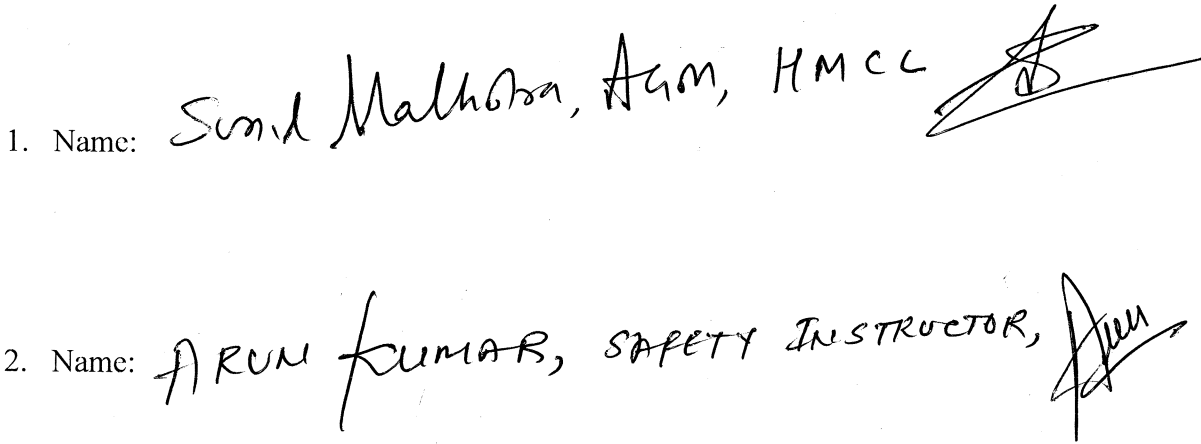 1. Name: Sunil Malhotra, Agm, HMCL
2. Name: ARUN KUMAR, SAFETY INSTRUCTOR, Arun